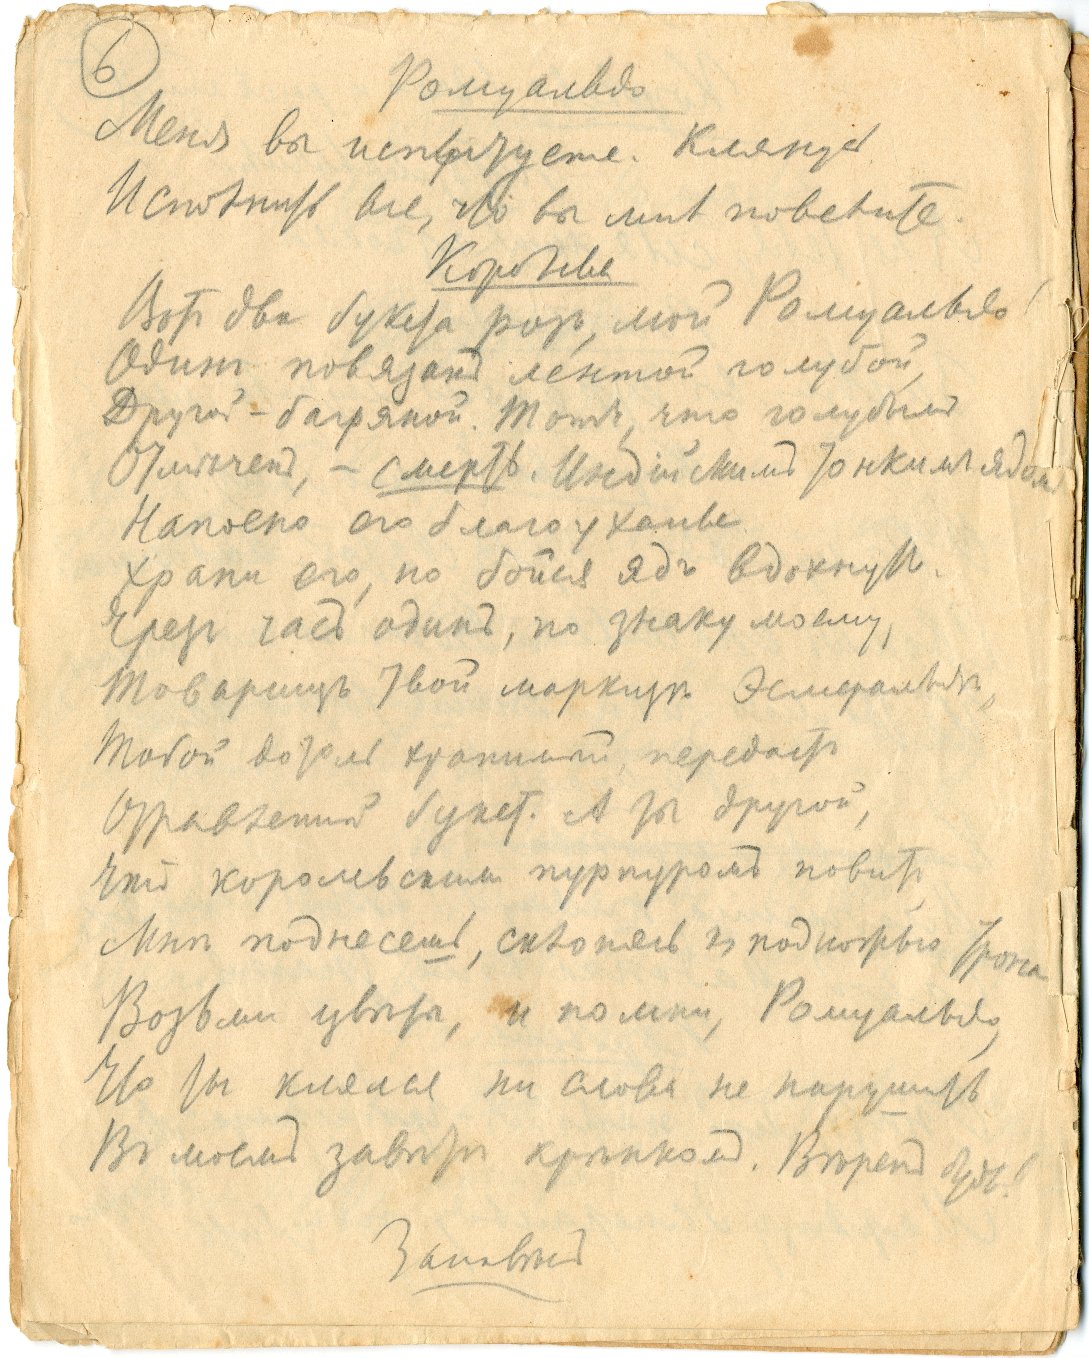 6
Ромуальдо
Меня вы испытуете. Клянусь
Исполнить все, что вы мнѣ повелите.
Королева
Вотъ два букета розъ, мой Ромуальдо!
Одинъ повязанъ лентой голубой,
Другой – багряной. Тотъ, что голубымъ
Отмѣченъ, – смерть. Индійскимъ тонкимъ ядомъ
Напоено его благоуханье.
Храни его, но бойся ядъ вдохнуть.
Чрезъ часъ одинъ, по знаку моему,
Товарищъ твой маркизъ Эсмеральдъ,
Тобой дотоль хранимый, передастъ
Отравленный букетъ. А ты другой,
Что королевскимъ пурпуромъ повитъ,
Мнѣ поднесешь, склонясь къ подножью трона
Возьми цвѣты, и помни, Ромуальдо,
Что ты клялся ни слова не нарушить
Въ моемъ завѣтѣ крѣпкомъ. Вѣренъ будь!
Занавѣсъ